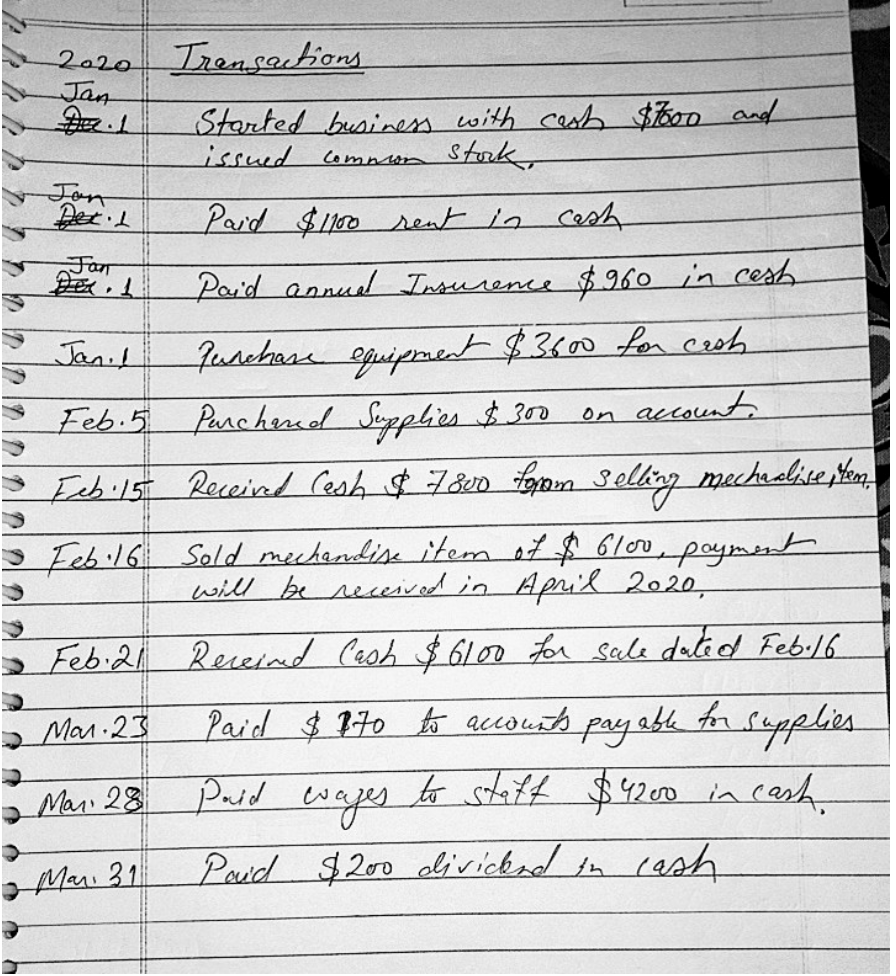 2020 Transactions
Jan
Dec. 1 Started business with cash $7600 and
issued common stock.
Jan
Dec. 1 Paid $1100 rent in cash
Jan
Dec. 1 Paid annual Insurence $960 in cash
Jan. 1 Purchase equipment $3600 for cash
Feb. 5 Purchased Supplies $300 on account.
Feb. 15 Received Cash $7800 from selling mechadise item.
Feb. 16 Sold mechandise item of $6100, payment
will be received in April 2020.
Feb. 21 Received Cash $6100 for sale dated Feb. 16
Mar. 23 Paid $170 to accounts payable for supplies
Mar. 28 Paid wages to staff $4200 in cash.
Mar. 31 Paid $200 dividend in cash